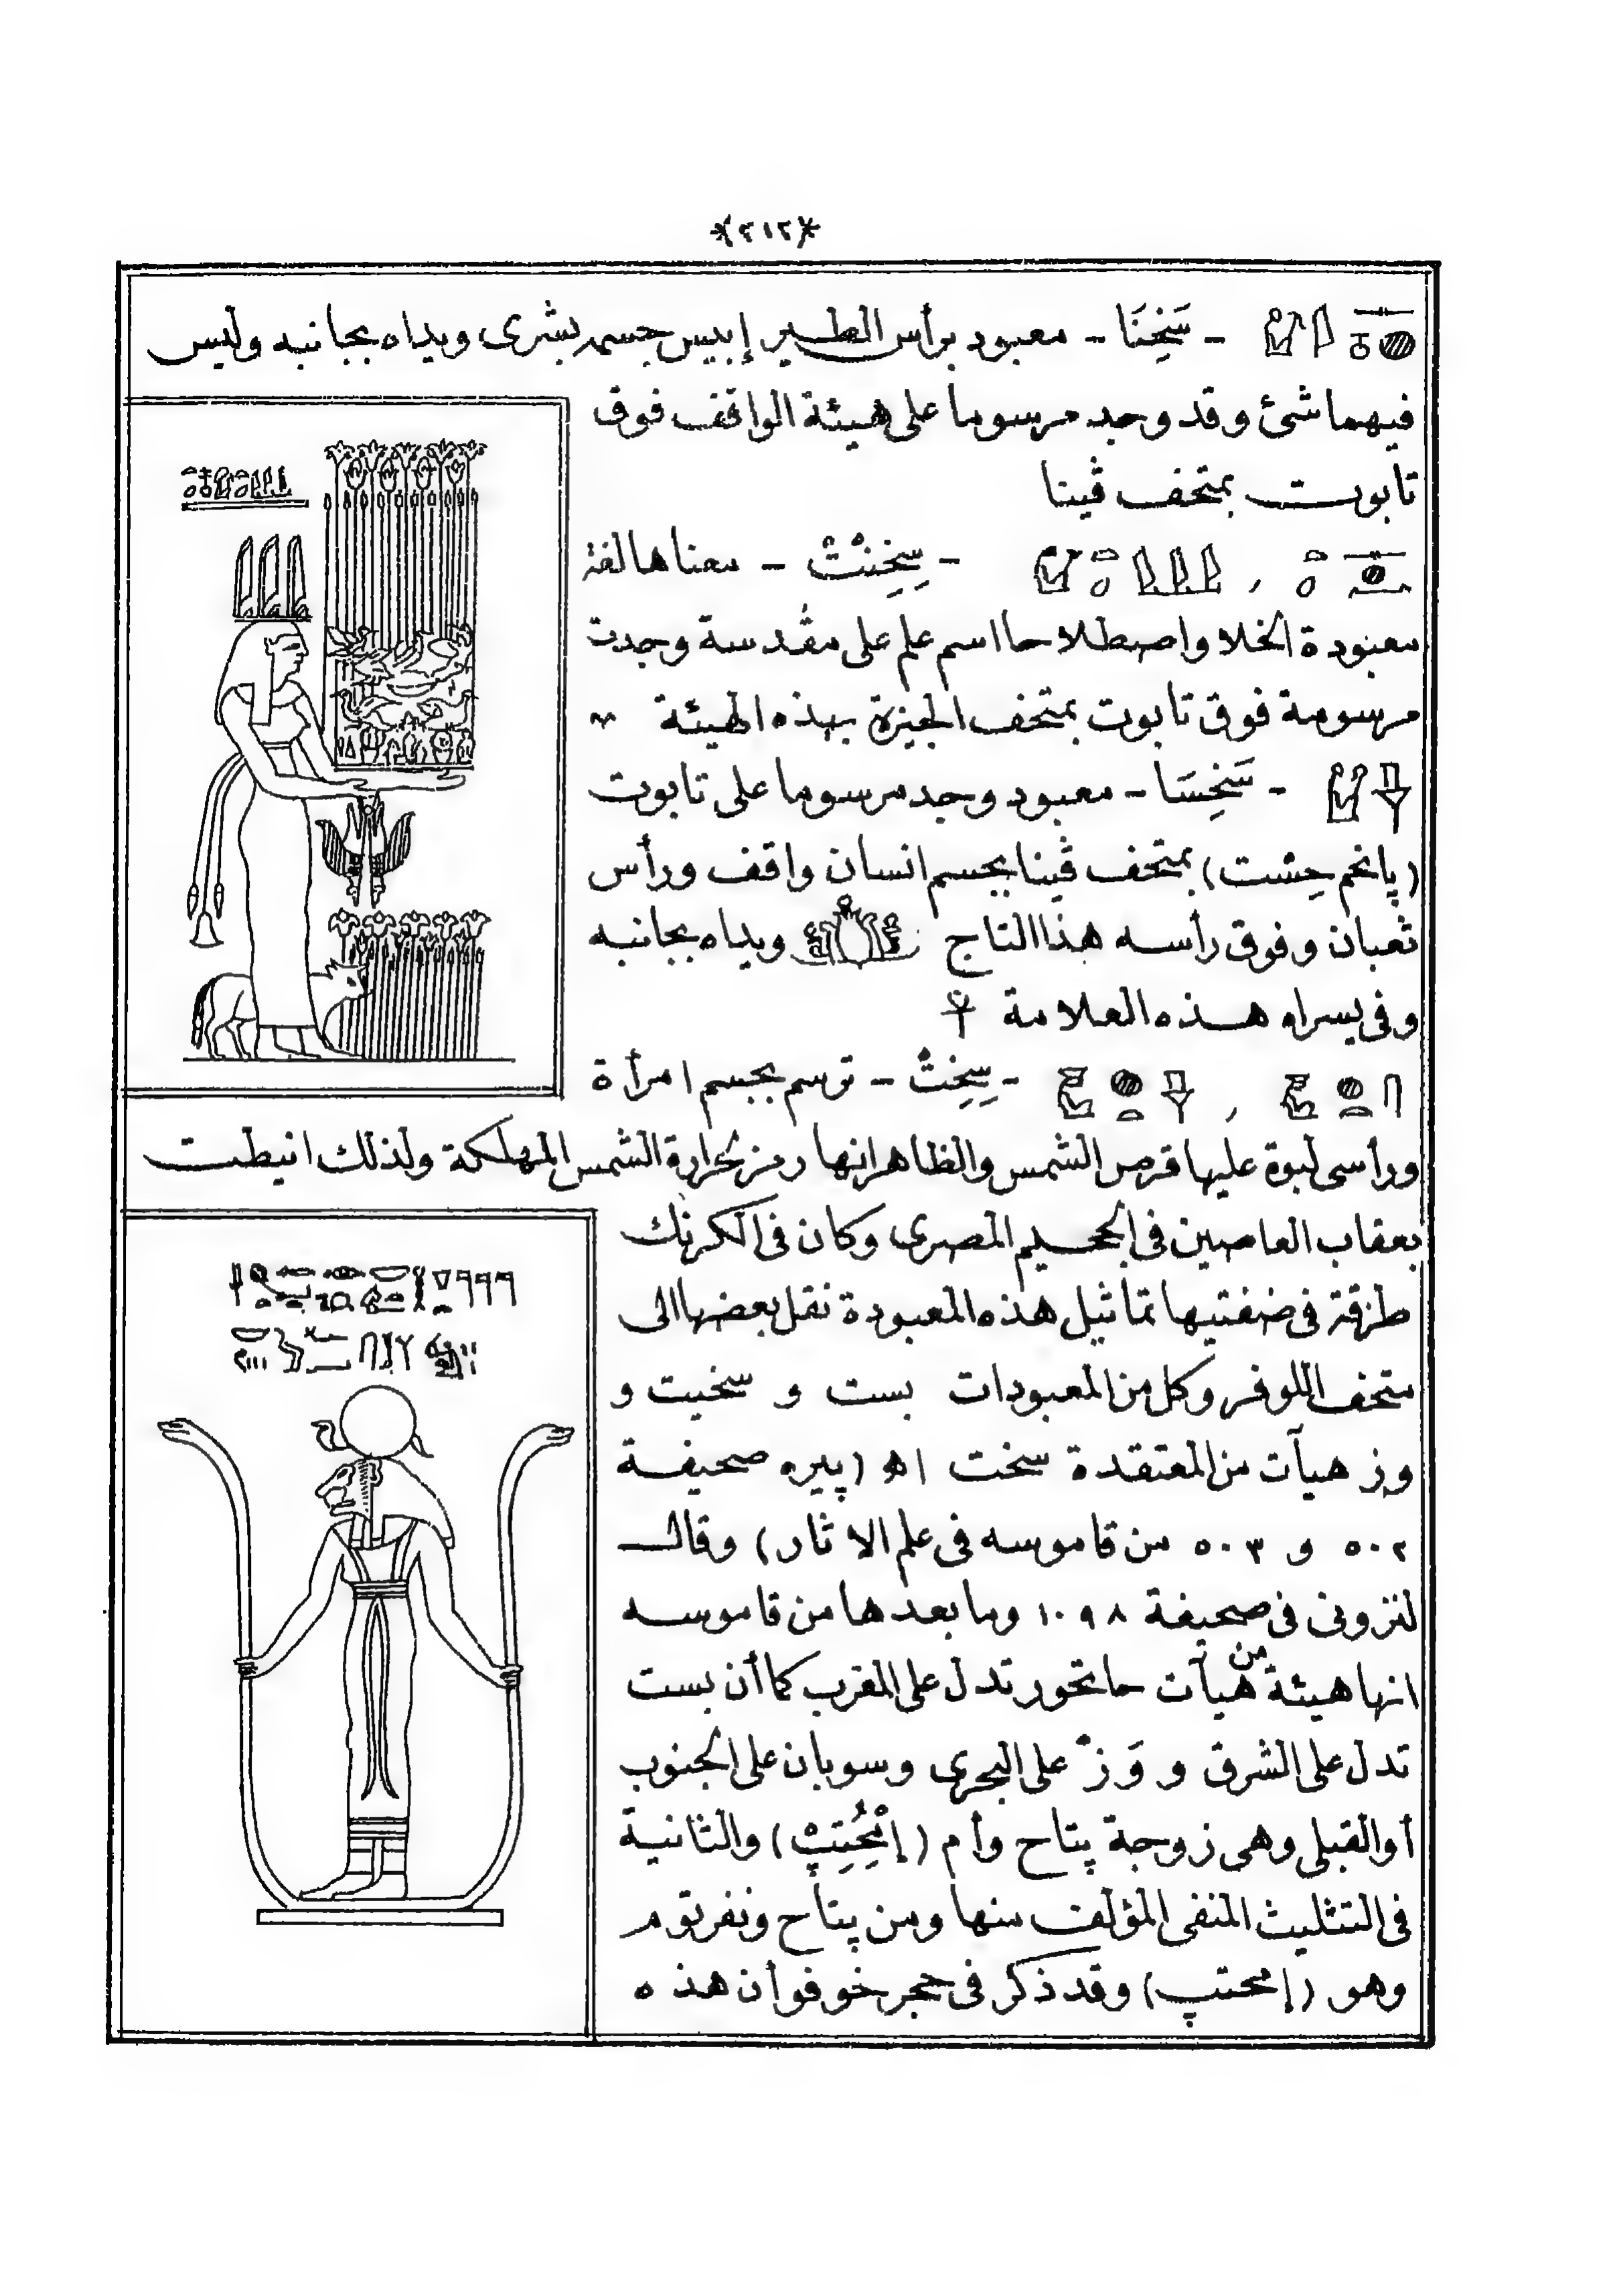 *(٢١٢)*
- سَخِنَا - معبود برأس الطير إيبيس جسمه بشرى ويداه بجانبه وليس
فيهما شئ وقد وجد مرسوما على هيئة الواقف فوق
تابوت بمتحف ڤينا
- سِخِنْتْ - معناها لغة
معبودة الخلا واصطلاحا اسم علم على مقدسة وجدت
مرسومة فوق تابوت بمتحف الجيزة بهذه الهيئة
- سَخِسَا - معبود وجد مرسوما على تابوت
(پانخم حِسْت) بمتحف ڤينا بجسم انسان واقف ورأس
ثعبان وفوق رأسه هذا التاج ويداه بجانبه
وفى يسراه هذه العلامة ☥
- سِخِتْ - ترسم بجسم امرأة
ورأسى لبوة عليها قرص الشمس والظاهر انها رمز لحرارة الشمس المهلكة ولذلك انيطت
بعقاب العاصين فى الجحيم المصرى وكان فى الكرنك
طرقة فى ضفتيها تماثيل هذه المعبودة نقل بعضها الى
متحف اللوفر وكل من المعبودات بست و سخيت و
وز هيآت من المعتقدة سخت اه (پيره صحيفة
٥٠٢ و ٥٠٣ من قاموسه فى علم الاثار) وقال
لنزونى فى صحيفة ١٠٩٨ وما بعدها من قاموسه
انها هيئة من هيآت حاتحور تدل على المغرب كما أن بست
تدل على الشرق و وَزّ على البحرى وسوبان على الجنوب
أو القبلى وهى زوجة پتاح وأم (إمْحُتِپْ) والثانية
فى التثليث المنفى المؤلف منها ومن پتاح ونفرتوم
وهو (إمحتپ) وقد ذكر فى حجر خوفو أن هذه